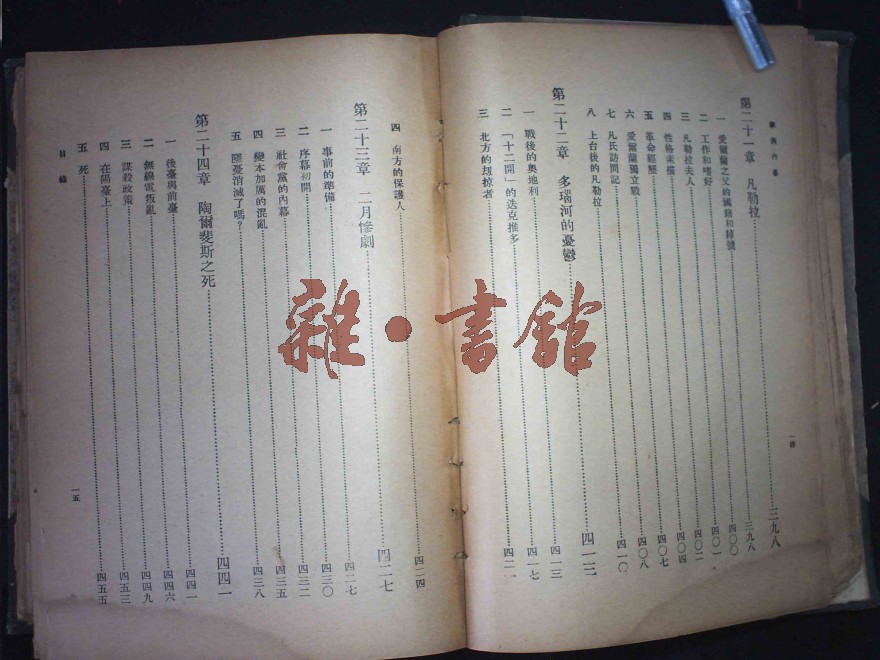 第二十一章　凡勒拉……三九八
一　愛爾蘭之父的國籍和綽號……三九八
二　工作和嗜好……四〇〇
三　凡勒拉夫人……四〇一
四　性格素描……四〇二
五　革命經歷……四〇四
六　愛爾蘭獨立戰……四〇七
七　凡氏訪問記……四〇八
八　上台後的凡勒拉……四一〇
第二十二章　多瑙河的憂鬱……四一三
一　戰後的奧地利……四一三
二　「十二開」的迭克推多……四一七
三　北方的刼掠者……四二一
一四
四　南方的保護人……四二四
第二十三章　二月慘劇……四二七
一　事前的準備……四二七
二　序幕初開……四三〇
三　社會黨的內幕……四三二
四　變本加厲的混亂……四三五
五　隱憂消滅了嗎？……四三八
第二十四章　陶爾斐斯之死……四四一
一　後臺與前臺……四四一
二　無線電叛亂……四四六
三　謀殺政策……四四九
四　在陽臺上……四五三
五　死……四五五
目錄
一五
雜・書館